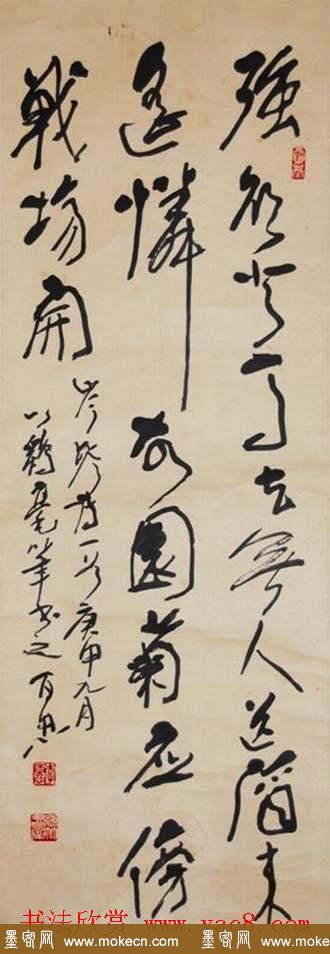 強欲登高去無人送酒来
遥憐故園菊应傍
戦場開
岑参诗一首庚申九月
以鶴毫筆书之
书法欣赏 www.yac8.com
墨客网 www.mokecn.com 墨客网 www.mokecn.com